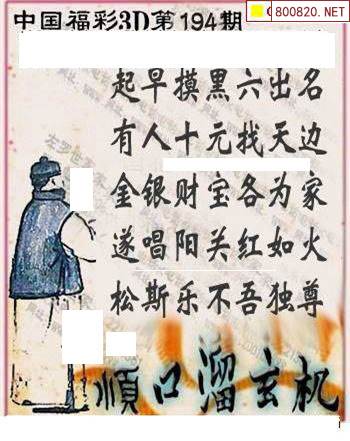 800820.NET
中国福彩3D第194期
起早摸黑六出名
有人十元找天边
金银财宝各为家
遂唱阳关红如火
松斯乐不吾独尊
順口溜玄机